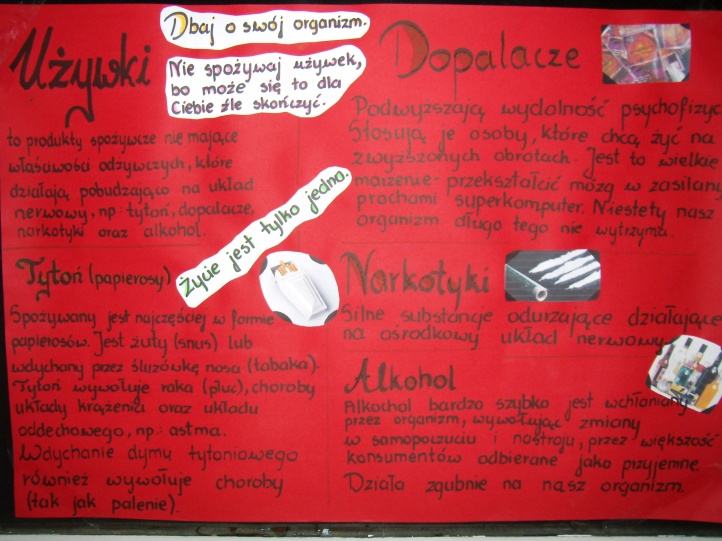 Używki
Dbaj o swój organizm.
Nie spożywaj używek,
bo może się to dla
Ciebie źle skończyć.
to produkty spożywcze nie mające
właściwości odżywczych, które
działają pobudzająco na układ
nerwowy, np.: tytoń, dopalacze,
narkotyki oraz alkohol.
Życie jest tylko jedno.
Dopalacze
Podwyższają wydolność psychofizyc
Stosują je osoby, które chcą żyć na
zwyższonych obrotach. Jest to wielkie
marzenie - przekształcić mózg w zasilany
prochami superkomputer. Niestety nasz
organizm długo tego nie wytrzyma.
Tytoń (papierosy)
Spożywany jest najczęściej w formie
papierosów. Jest żuty (snus) lub
wdychany przez śluzówkę nosa (tabaka).
Tytoń wywołuje raka (płuc), choroby
układy krążenia oraz układu
oddechowego, np.: astma.
Wdychanie dymu tytoniowego
również wywołuje choroby
(tak jak palenie).
Narkotyki
Silne substancje odurzające działające
na ośrodkowy układ nerwowy.
Alkohol
Alkochol bardzo szybko jest wchłaniany
przez organizm, wywołując zmiany
w samopoczuciu i nastroju, przez większość
konsumentów odbierane jako przyjemne.
Działa zgubnie na nasz organizm.